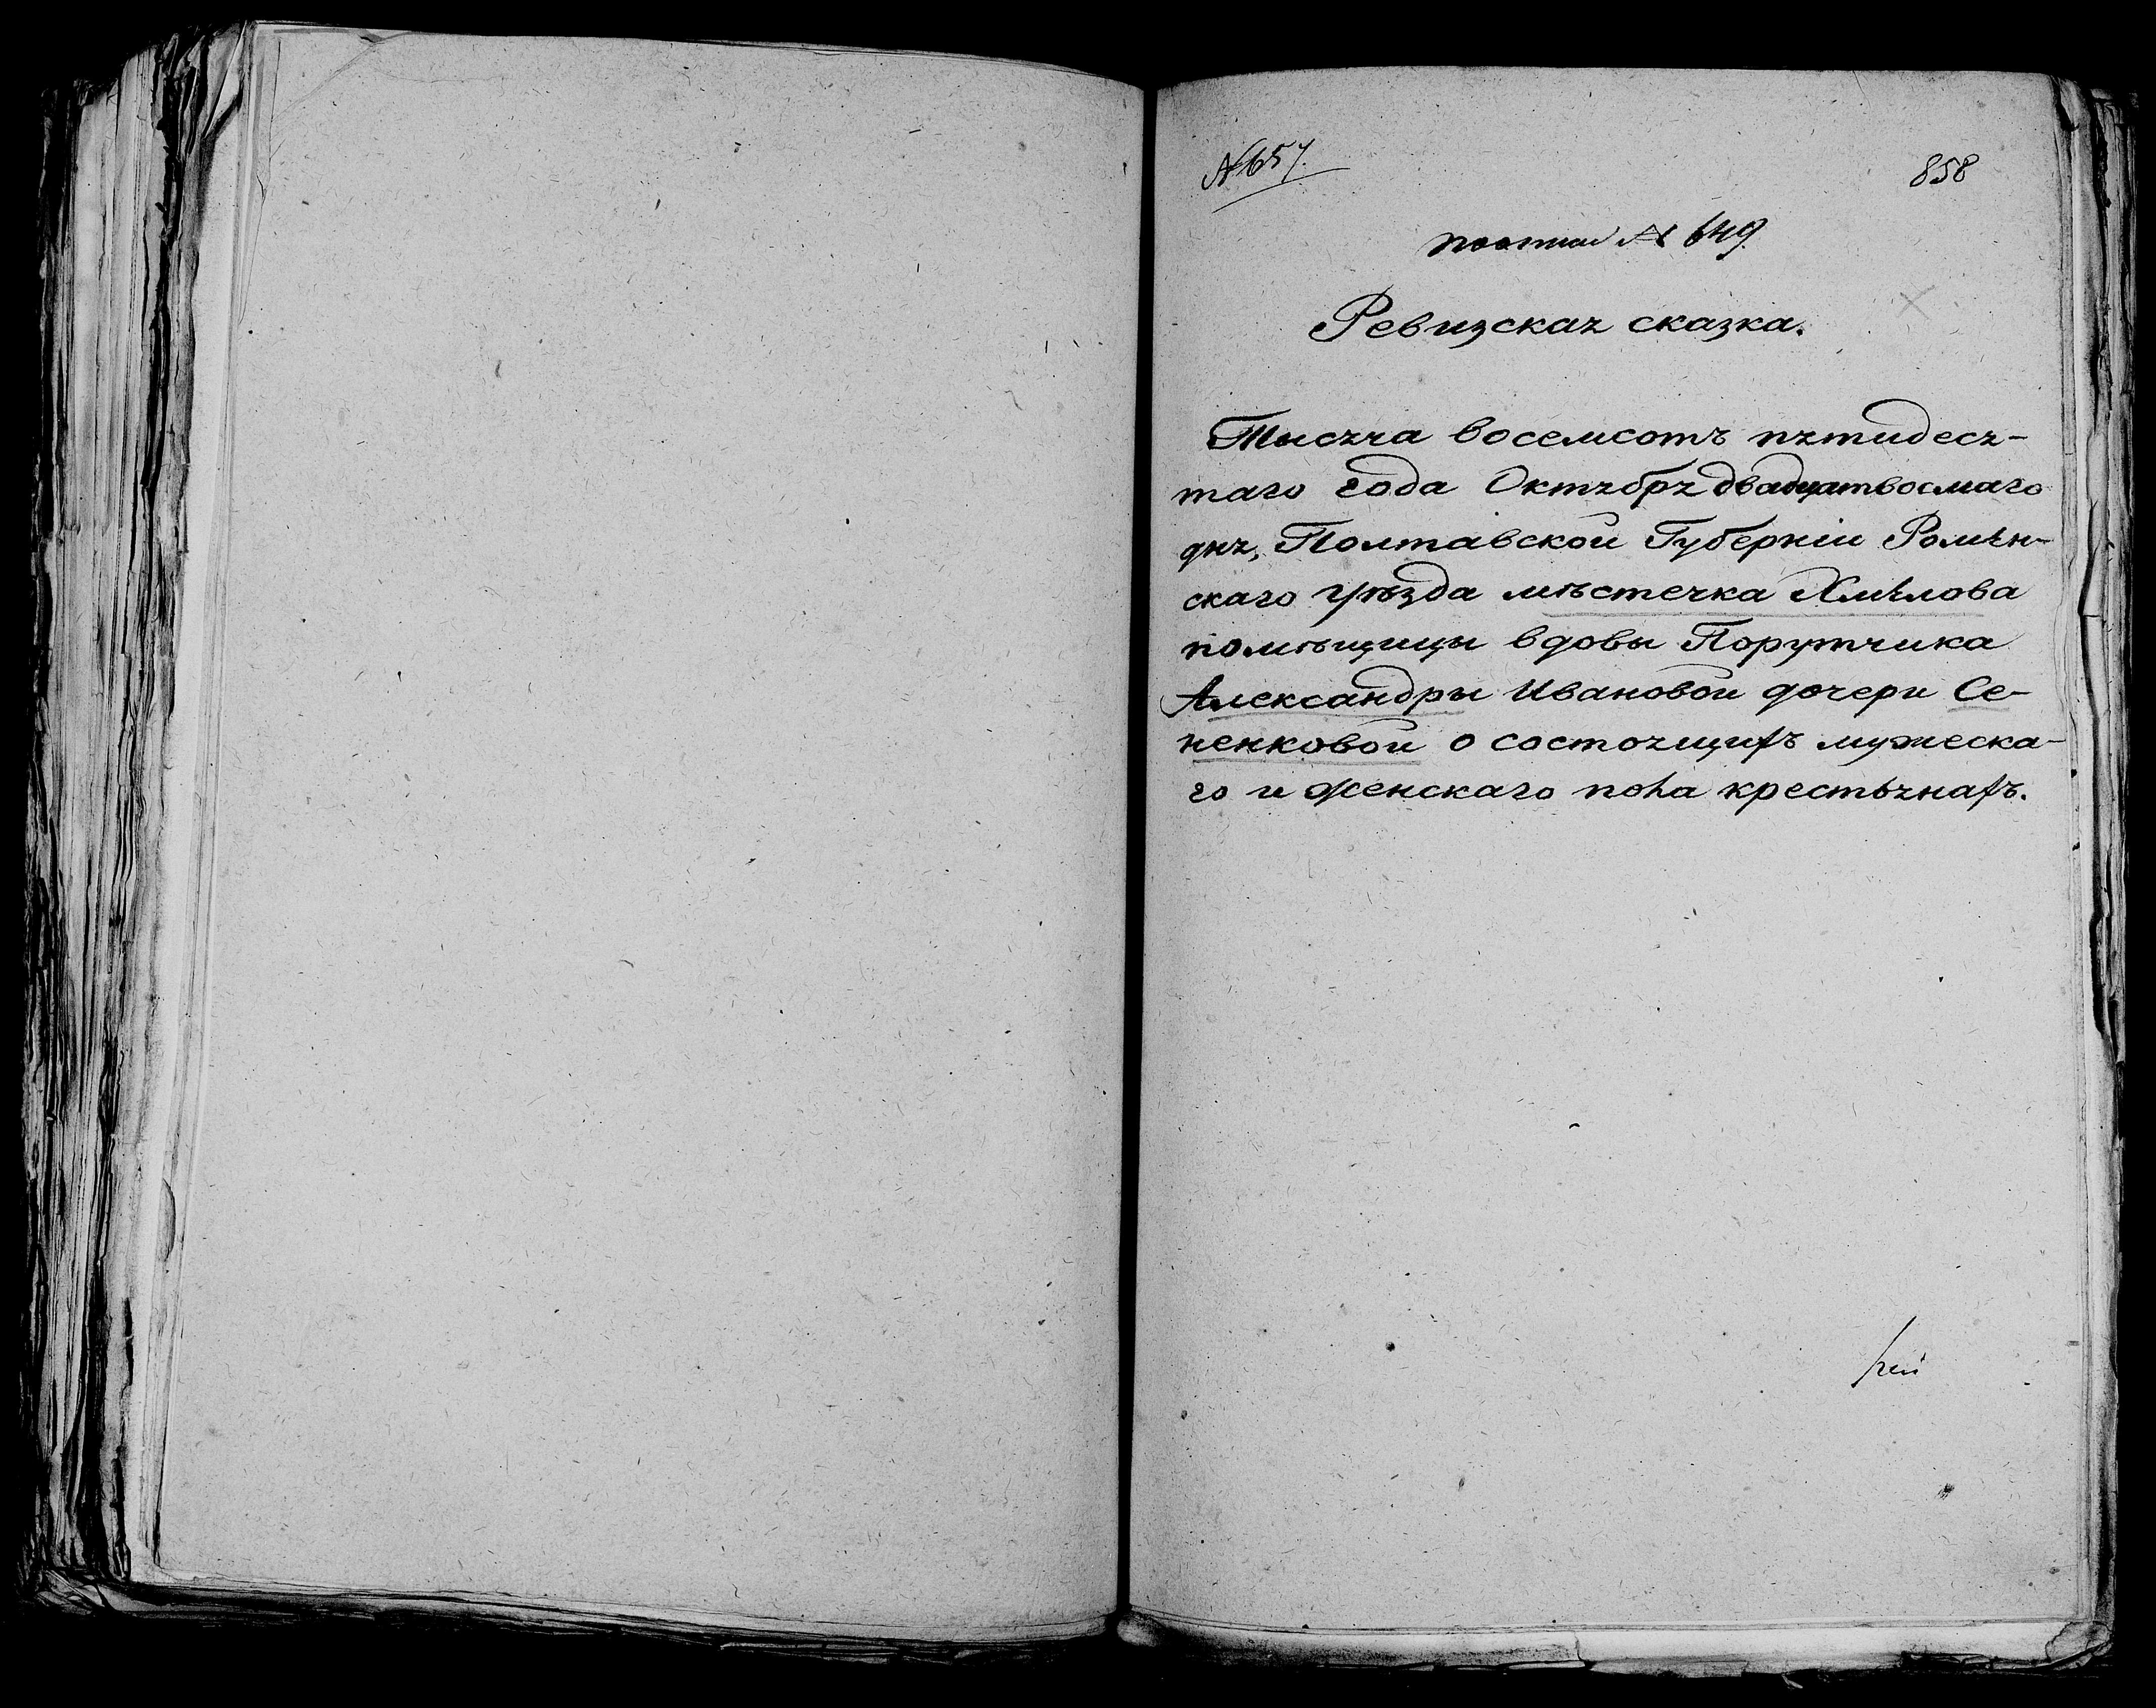 № 657.
858
№ 649
Ревизская сказка.
Тысяча восемсотъ пятидеся-
таго года Октября двадцатвосмаго
дня, Полтавской Губерніи Ромѣн-
скаго уѣзда мѣстечка Хмѣлова
помѣщицы вдовы Порутчика
Александры Ивановой дочери Се-
ненковой о состоящихъ мужеска-
го и женскаго пола крестьянахъ.